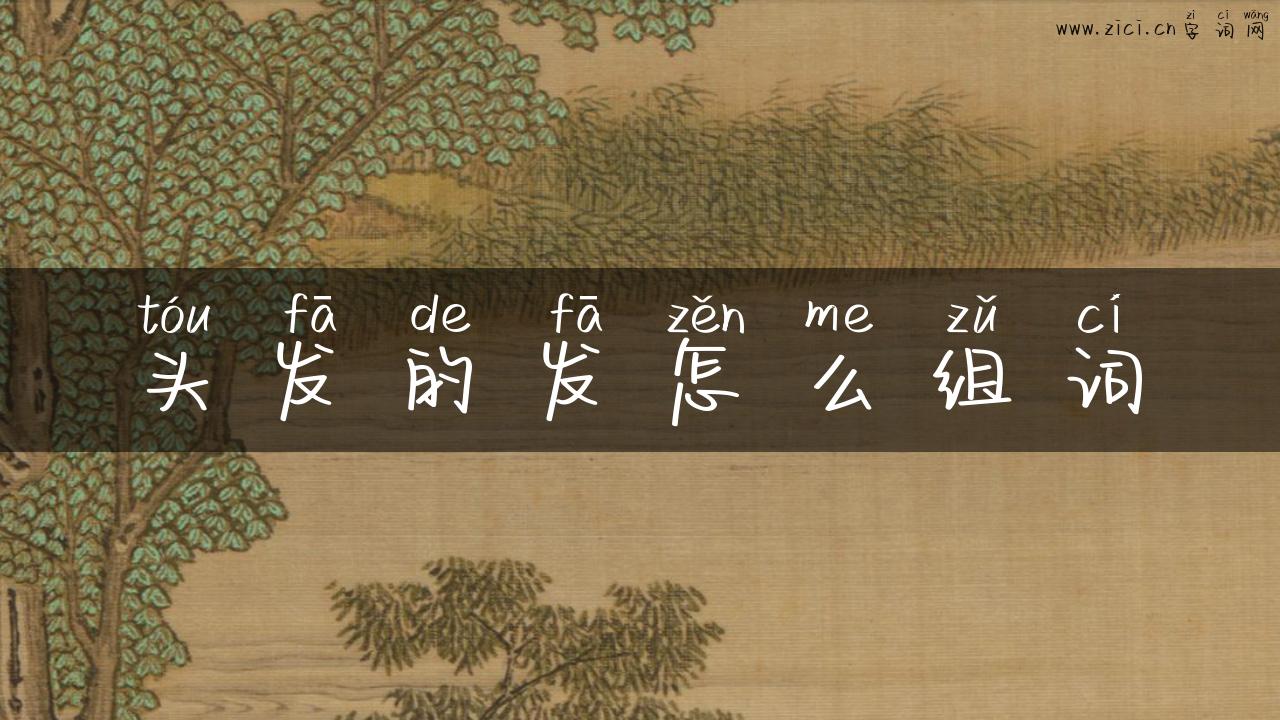 zi ci wāng
www.zici.cn字词网
tóu fā de fā zěn me zǔ cí
头发的发怎么组词